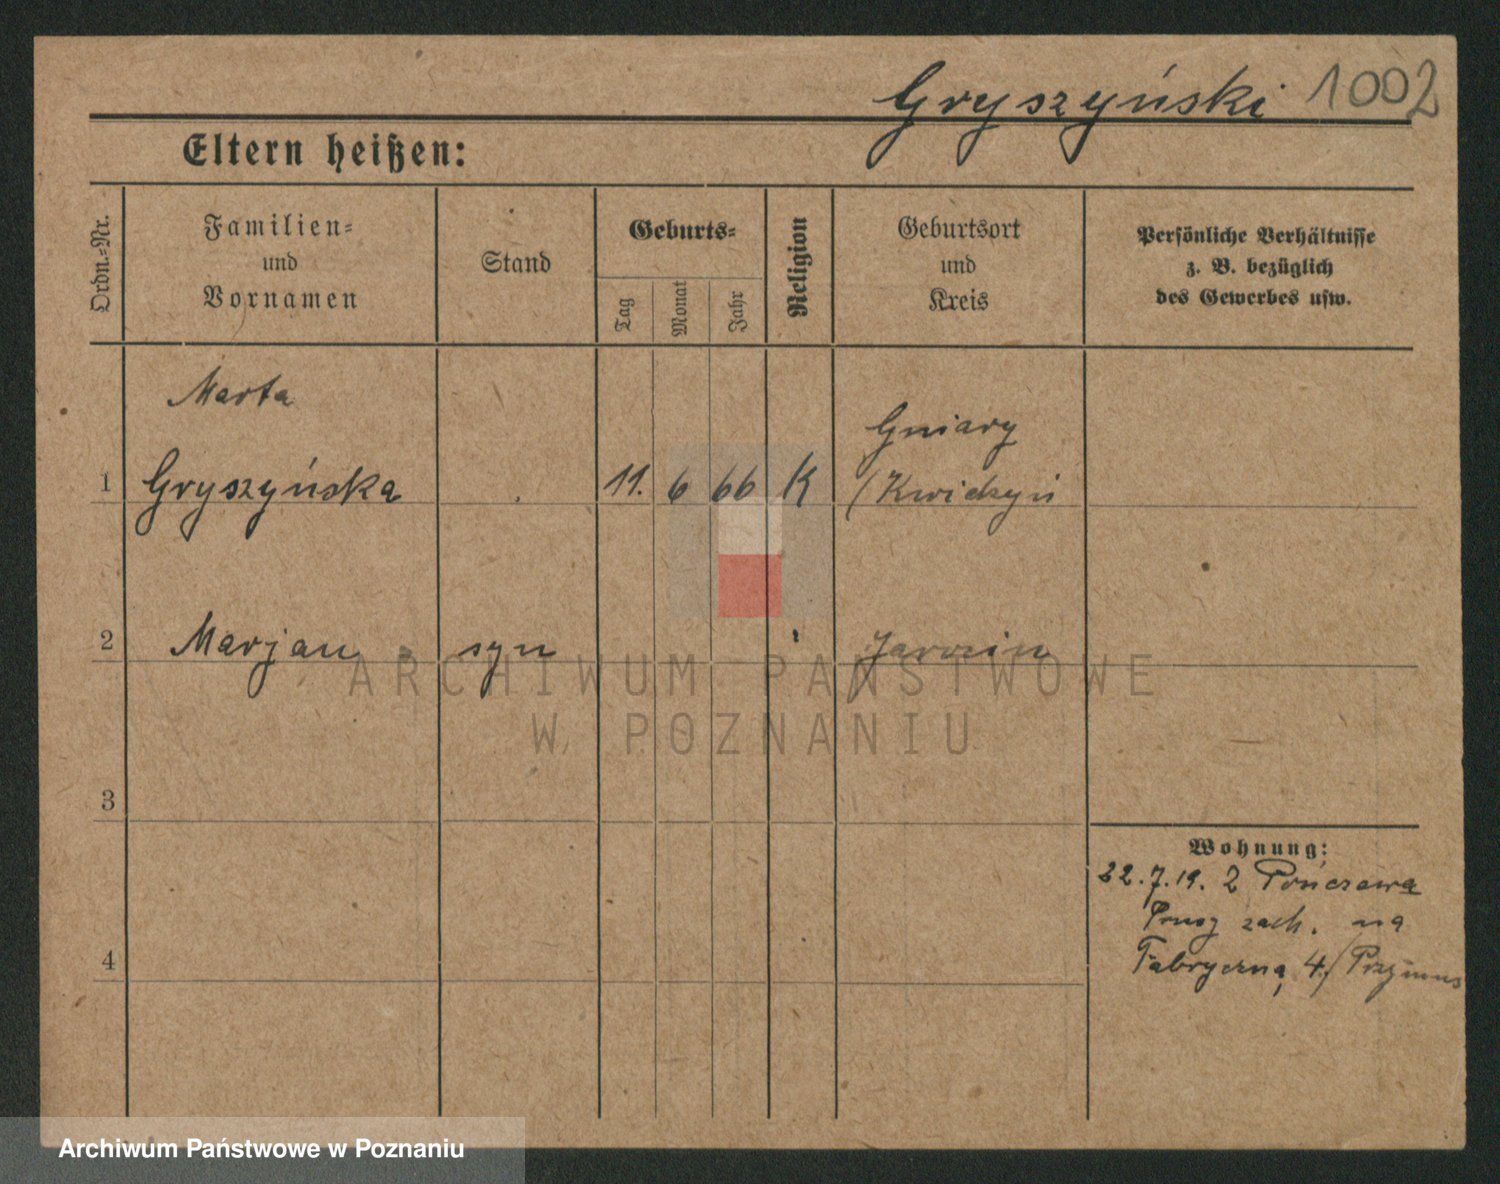 Gryszyński 1002
Eltern heißen:
Ordn.-Nr.
Familien-
und
Vornamen
Stand
Geburts-
Tag
Monat
Jahr
Religion
Geburtsort
und
Kreis
Persönliche Verhältnisse
z. B. bezüglich
des Gewerbes usw.
Marta
Gniary
1 Gryszyńska 11. 6 66 K (Kwidzyń
2 Marjan syn Jarocin
ARCHIWUM PAŃSTWOWE
W POZNANIU
3
Wohnung:
22.7.19. Z
Prusy zach. na
4 Fabryczna, 4/ Przymus
Archiwum Państwowe w Poznaniu